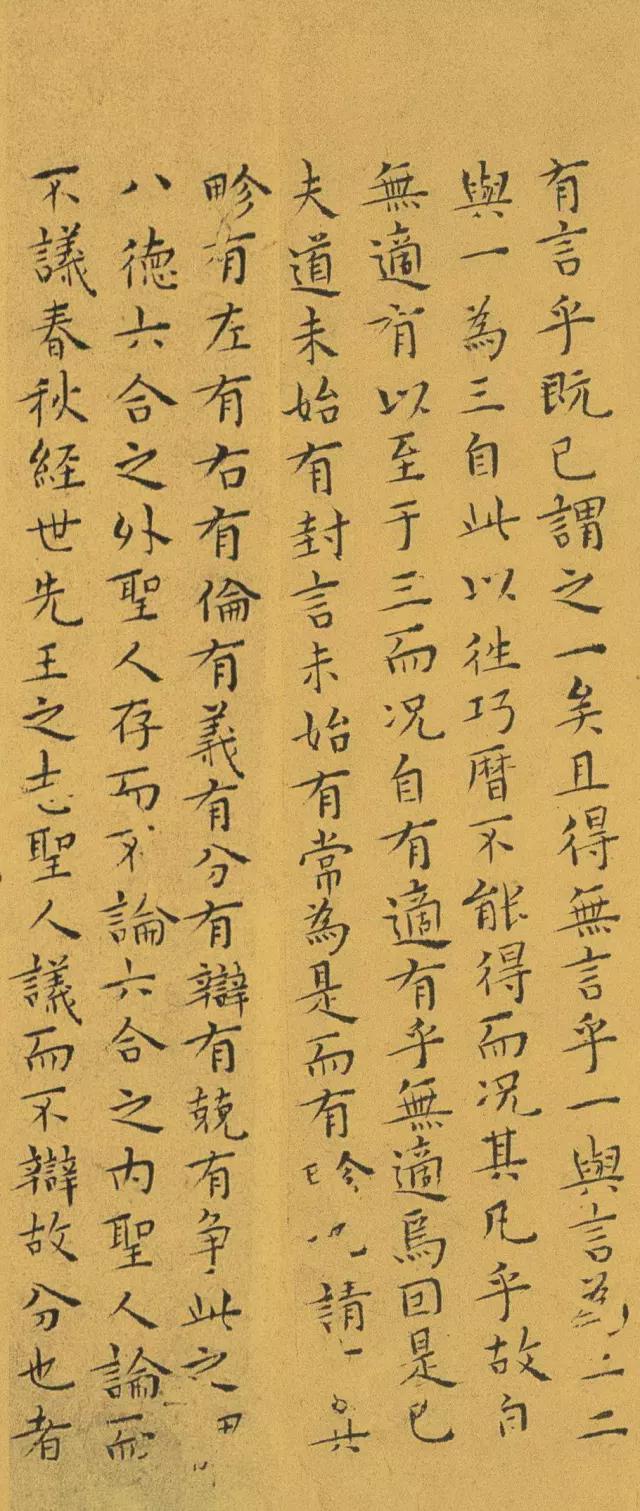 有言乎既已謂之一矣且得無言乎一與言為二二
與一為三自此以往巧暦不能得而况其凡乎故自
無適有以至于三而况自有適有乎無適焉因是已
夫道未始有封言未始有常為是而有畛請
畛有左有右有倫有義有分有辯有競有争此之
八德六合之外聖人存而不論六合之内聖人論而
不議春秋經世先王之志聖人議而不辯故分也者